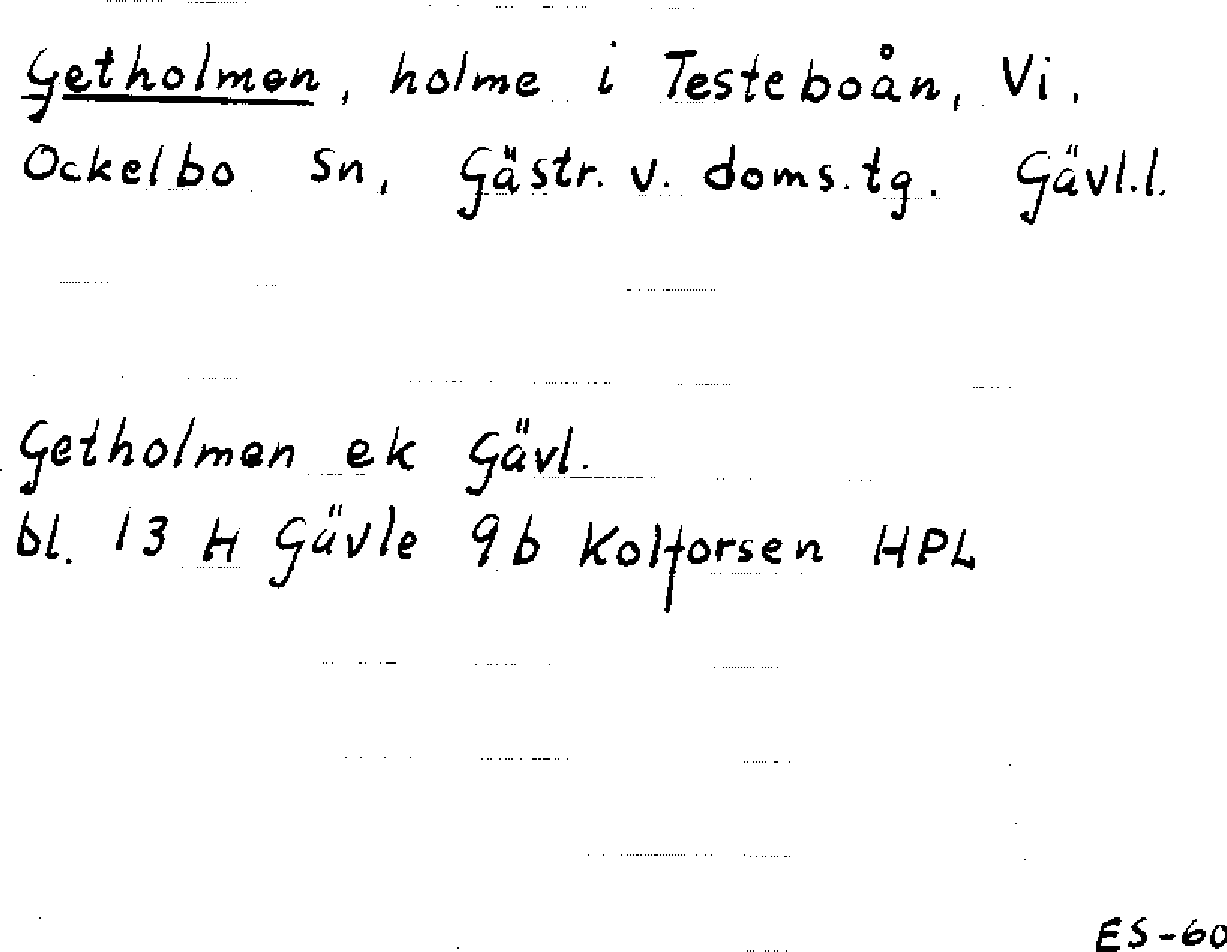 Getholmen, holme i Testeboån, Vi,
Ockelbo Sn, Gästr. v. doms.tg. Gävl.l.
Getholmen ek Gävl.
bl. 13 H Gävle 9b Kolforsen HPL
ES-60